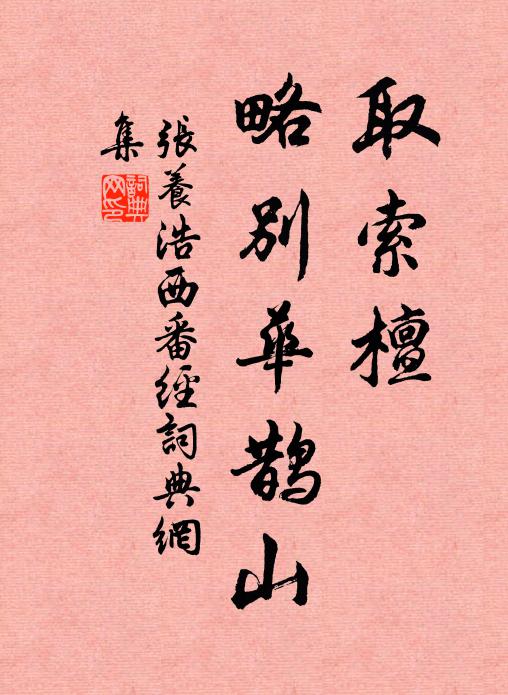 取索檀
略別華鵲山
張養浩西番經詞典網
集
詞典
网印